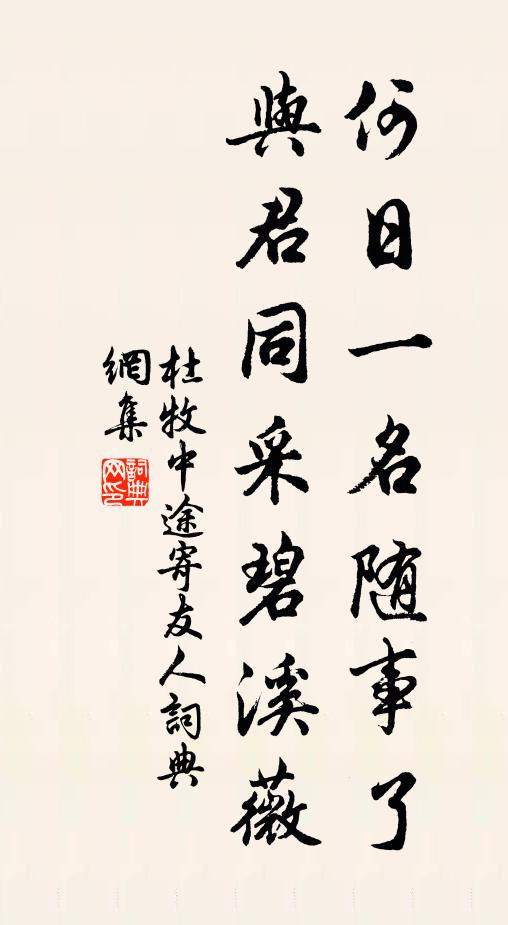 何日一名随事了
與君同采碧溪薇
杜牧中途寄友人詞典
網集
詞典網印